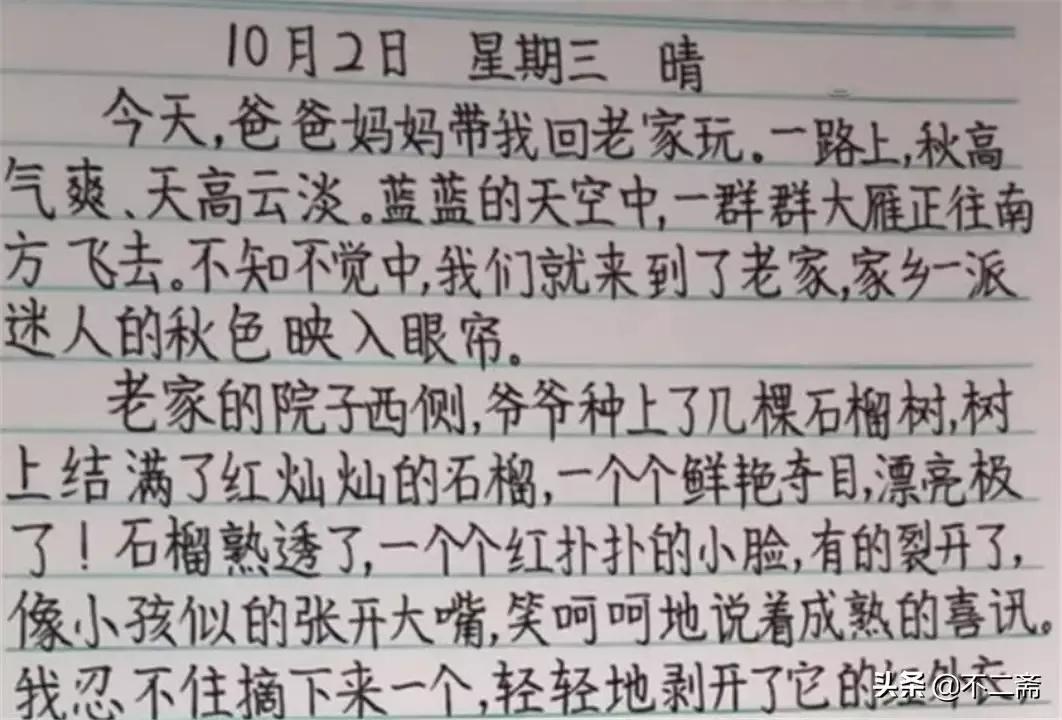 10月2日 星期三 晴
今天,爸爸妈妈带我回老家玩。一路上,秋高
气爽、天高云淡。蓝蓝的天空中,一群群大雁正往南
方飞去。不知不觉中,我们就来到了老家,家乡一派
迷人的秋色映入眼帘。
老家的院子西侧,爷爷种上了几棵石榴树,树
上结满了红灿灿的石榴,一个个鲜艳夺目,漂亮极
了!石榴熟透了,一个个红扑扑的小脸,有的裂开了,
像小孩似的张开大嘴,笑呵呵地说着成熟的喜讯。
我忍不住摘下来一个,轻轻地剥开了它的红外衣
头条 @不二斋